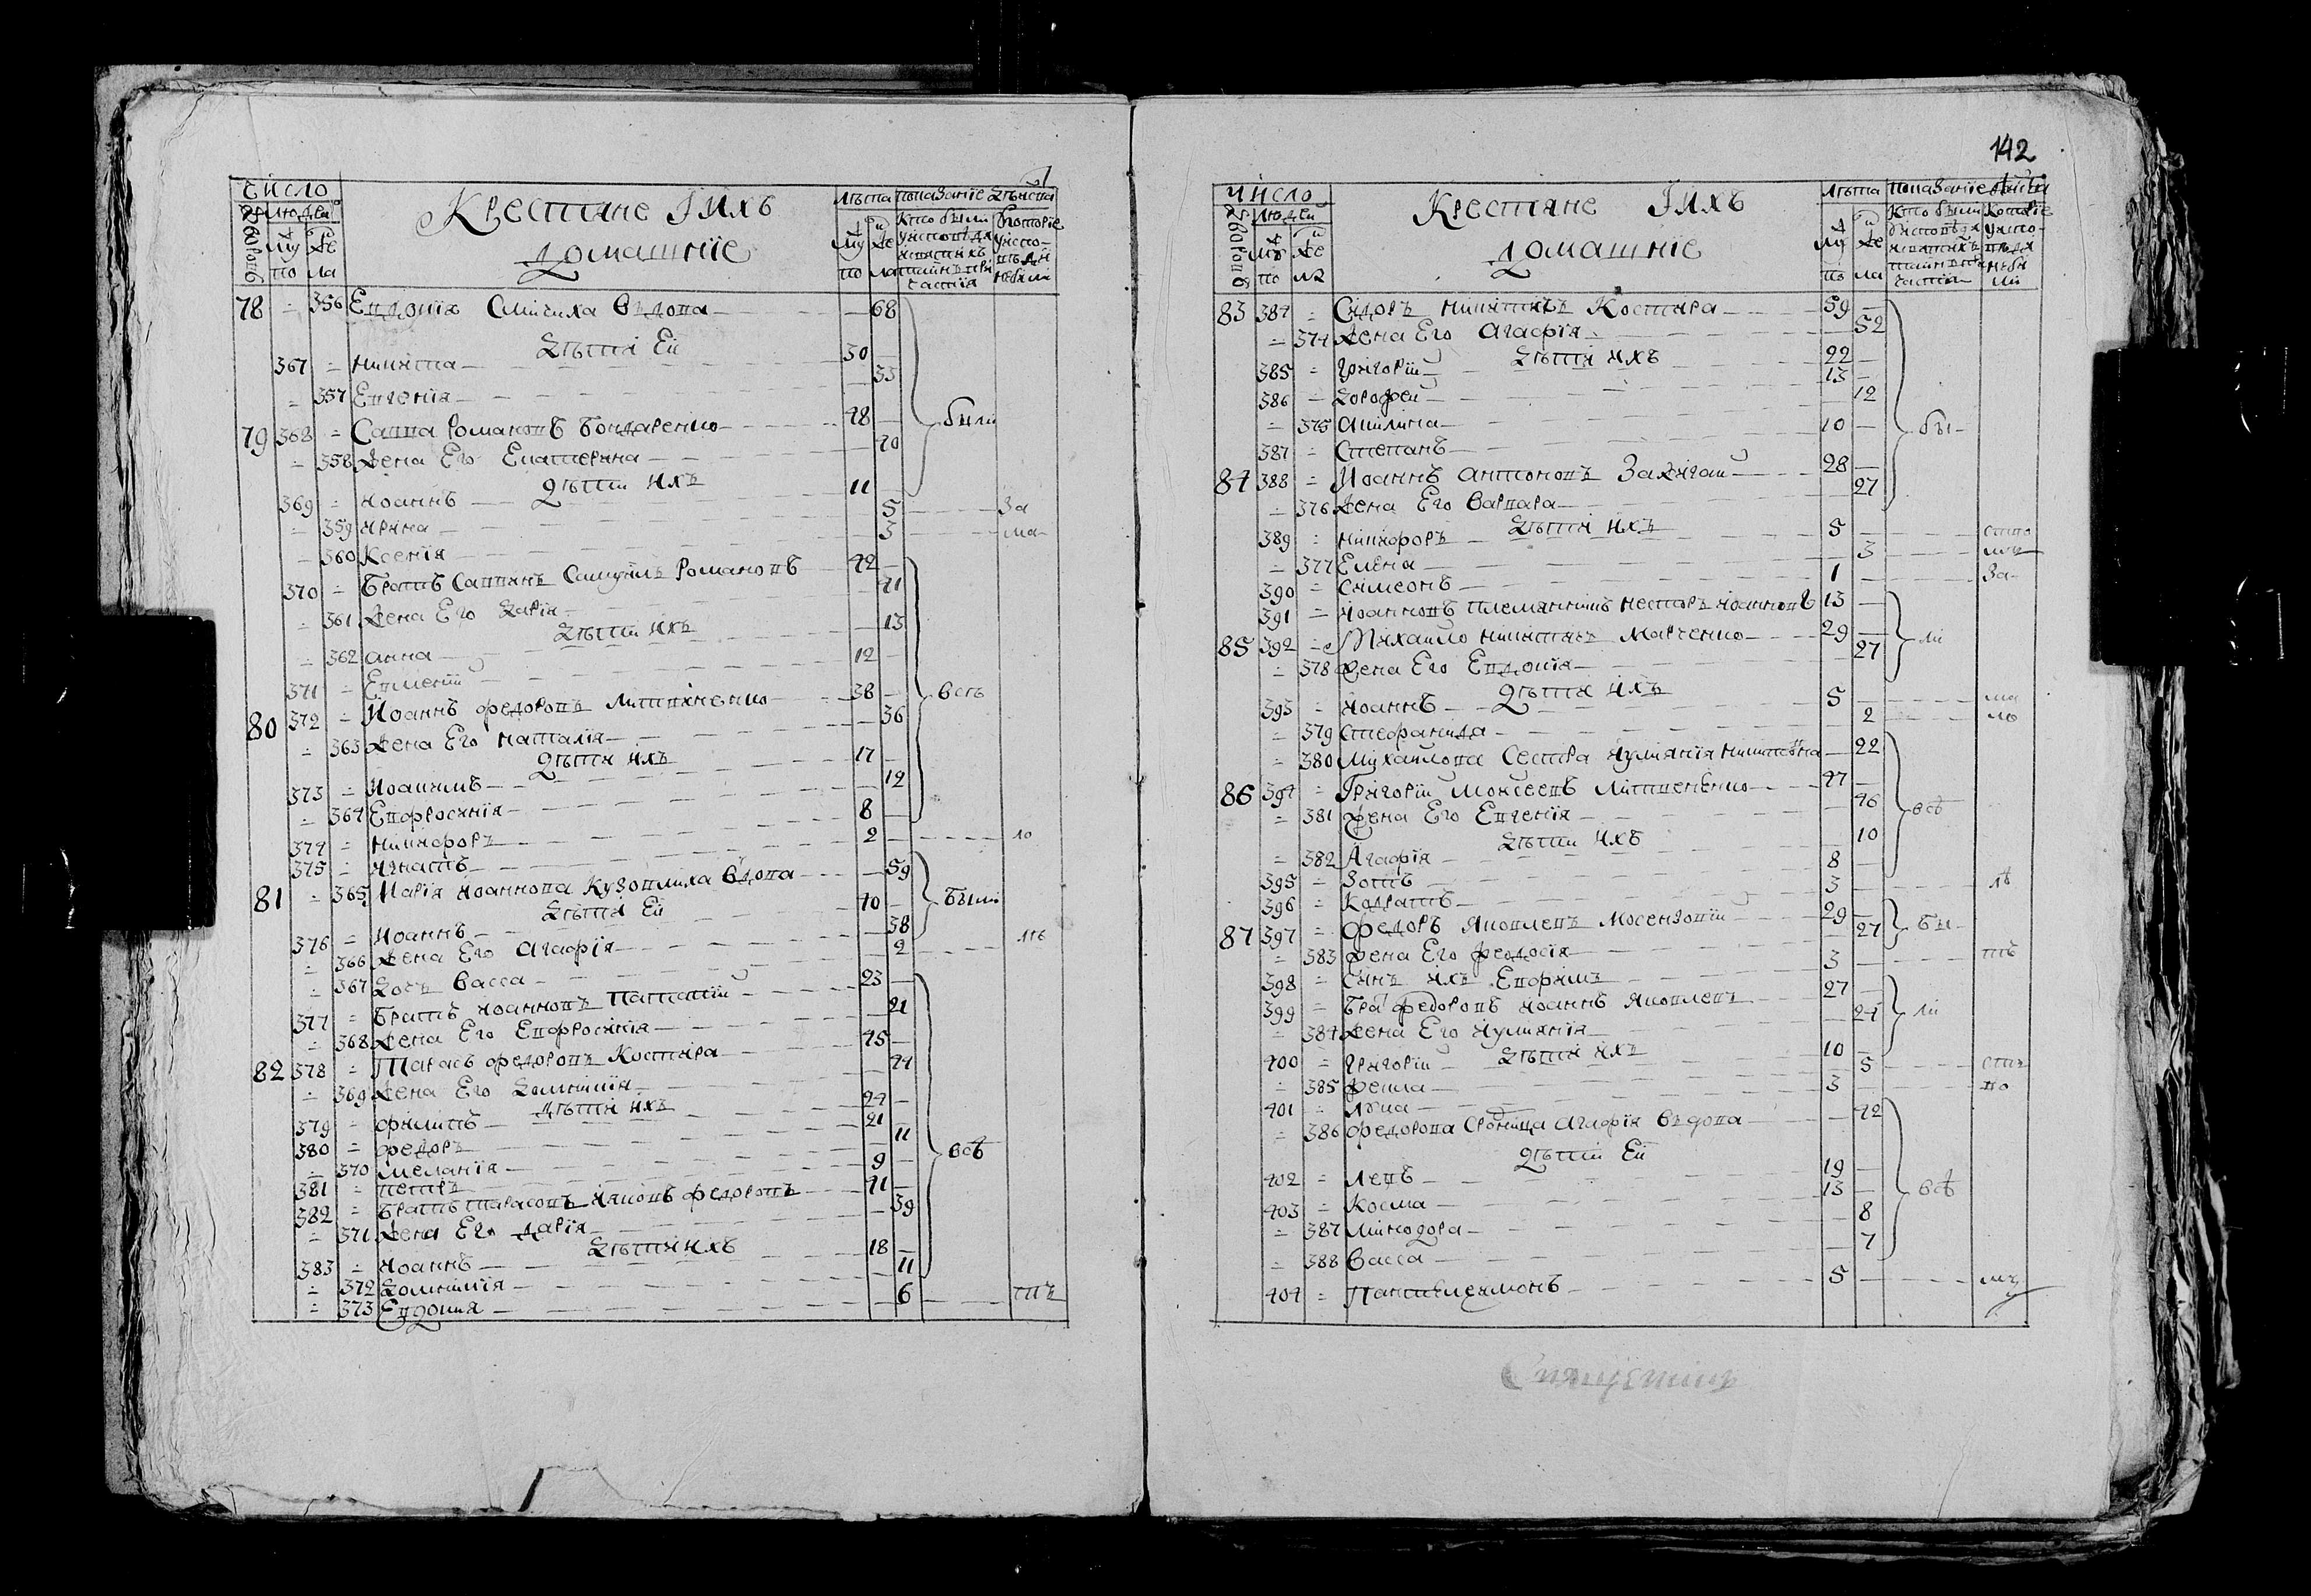 число
Крестяне І Ихъ
домашніе
лѣта показаніе дѣйства
людей
дворовъ
муж же
по ла
кто были
которіе
78 = 356 Евдокія Смичиха вдова — 68
Дѣти Ей
367 = Никита — 30
= 357 Евгенія — 33
79 368 = Савва Романовъ Бондаренко — 48
= 358 Жена Его Екатерина — 40
были
Дѣти ихъ
369 = Иоаннъ — 11
= 359 Ирина — 5 За
= 360 Ксенія — 3 ма
370 = Братъ Саввинъ Самуилъ Романовъ 42
= 361 Жена Его Дарія — 41
Дѣти ихъ
= 362 Анна — 13
371 = Евменій — 12
80 372 = Иоаннъ Федоровъ Литвиненко — 38
всѣ
= 363 Жена Его Наталія — 36
Дѣти ихъ
373 = Иоакимъ — 17
= 364 Евфросинія — 12
374 = Никифоръ — 8
375 = Игнатъ — 2 ло
81 = 365 Марія Иоаннова Кузовлиха Вдова — 59
Дѣти Ей
376 = Иоаннъ — 40
были
= 366 Жена Его Агафія — 38
= 367 Дочь Васса — 2 лѣ
377 = Братъ Иоанновъ Потапій — 23
= 368 Жена Его Евфросинія — 21
82 378 = Тарасъ Федоровъ Костира — 45
= 369 Жена Его Домникія — 44
Дѣти ихъ
379 = Филипъ — 24
380 = Федоръ — 21
= 370 Меланія — 11
всѣ
381 = Петръ — 9
382 = Братъ Тарасовъ Ияковъ Федоровъ — 41
= 371 Жена Его Дарія — 39
Дѣти ихъ
383 = Иоаннъ — 18
= 372 Домникія — 11
= 373 Евдокия — 6 тъ
142
число
Крестяне І Ихъ
домашніе
лѣта показаніе дѣйства
людей
дворовъ
муж же
по ла
кто были
которіе
83 384 = Сидоръ Никитинъ Костира — 59
= 374 Жена Его Агафія — 52
Дѣти ихъ
385 = Григорій — 22
386 = Дорофей — 13
= 375 Акилина — 12
387 = Степанъ — 10
бы-
84 388 = Иоаннъ Антоновъ Зажигай — 28
= 376 Жена Его Варвара — 27
Дѣти ихъ
389 = Никифоръ — 5
= 377 Елена — 3
390 = Симеонъ — 1 За-
391 = Иоанновъ племянникъ Несторъ Иоанновъ 13
85 392 = Михайло Никитинъ Марченко — 29
ли
= 378 Жена Его Евдокія — 27
Дѣти ихъ
393 = Иоаннъ — 5 ма
= 379 Стефанида — 2 ло
= 380 Михайлова Сестра Иулианія Никитовна — 22
86 394 = Григорій Моисеевъ Литвиненко — 47
= 381 Жена Его Евгенія — 46
всѣ
Дѣти ихъ
= 382 Агафія — 10
395 = Зотъ — 8
396 = Кодратъ — 3 лѣ
87 397 = Федоръ Яковлевъ Мосензовій — 29
бы-
= 383 Жена Его Феодосія — 27
398 = Синъ ихъ Ефримъ — 3 тъ
399 = Бра Федоровъ Иоаннъ Яковлевъ — 27
ли
= 384 Жена Его Иулианія — 24
Дѣти ихъ
400 = Григорій — 10
= 385 Фекла — 5
401 = Лука — 3 по
= 386 Федорова Сродница Агафія Вдова — 42
Дѣти Ей
402 = Левъ — 19
403 = Косма — 13
всѣ
= 387 Минодора — 8
= 388 Васса — 7
404 = Пантелеимонъ — 5